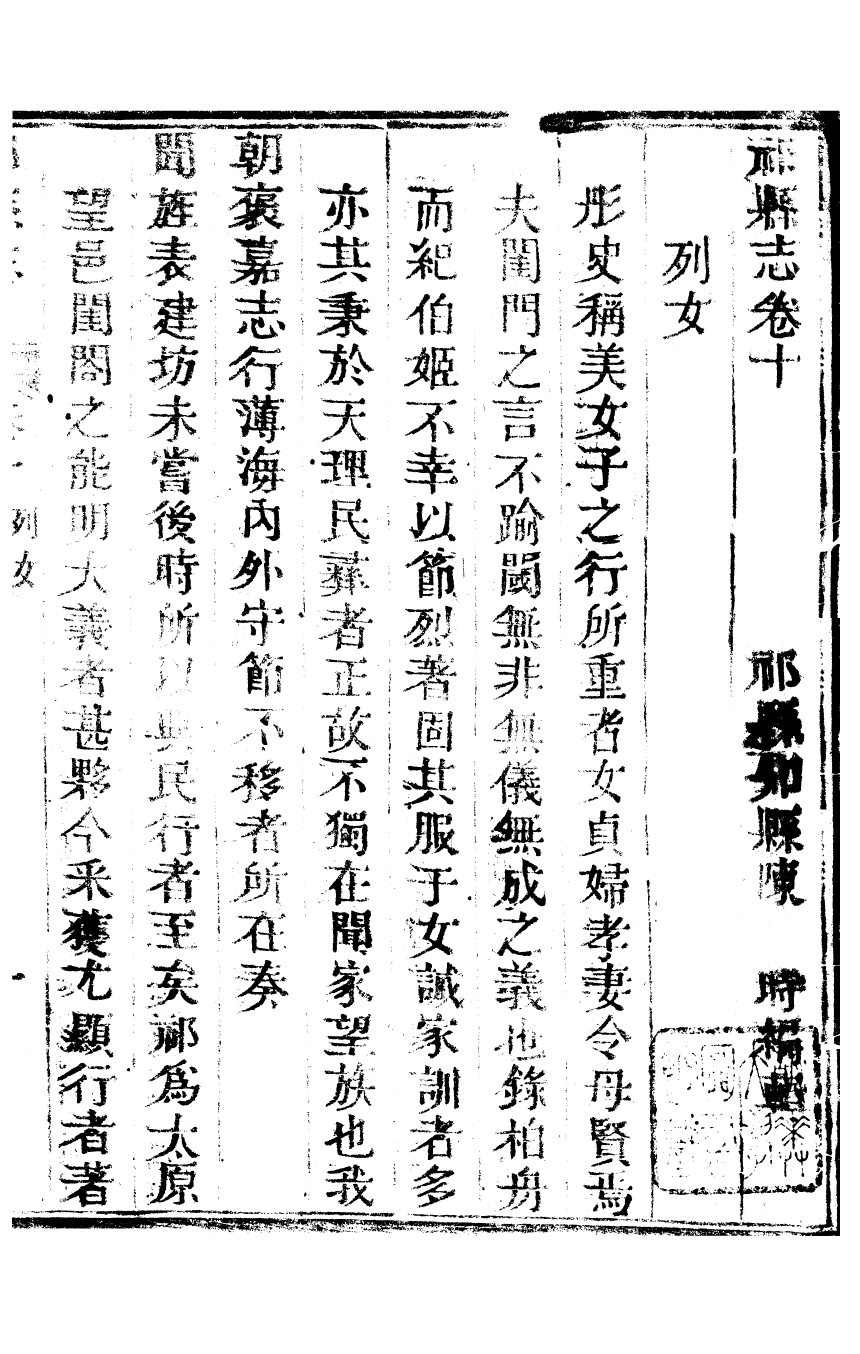 祁縣志卷十
祁縣知縣陳 時編輯
列女
彤史稱美女子之行所重者女貞婦孝妻令母賢焉
夫閨門之言不踰閾無非無儀無成之義也錄柏舟
而紀伯姬不幸以節烈著固其服于女誡家訓者多
亦其秉於天理民彞者正故不獨在聞家望族也我
朝褒嘉志行薄海內外守節不移者所在奏
聞旌表建坊未嘗後時所以興民行者至矣祁爲太原
望邑閨閤之能明大義者甚夥今采獲尤顯行者著
列女